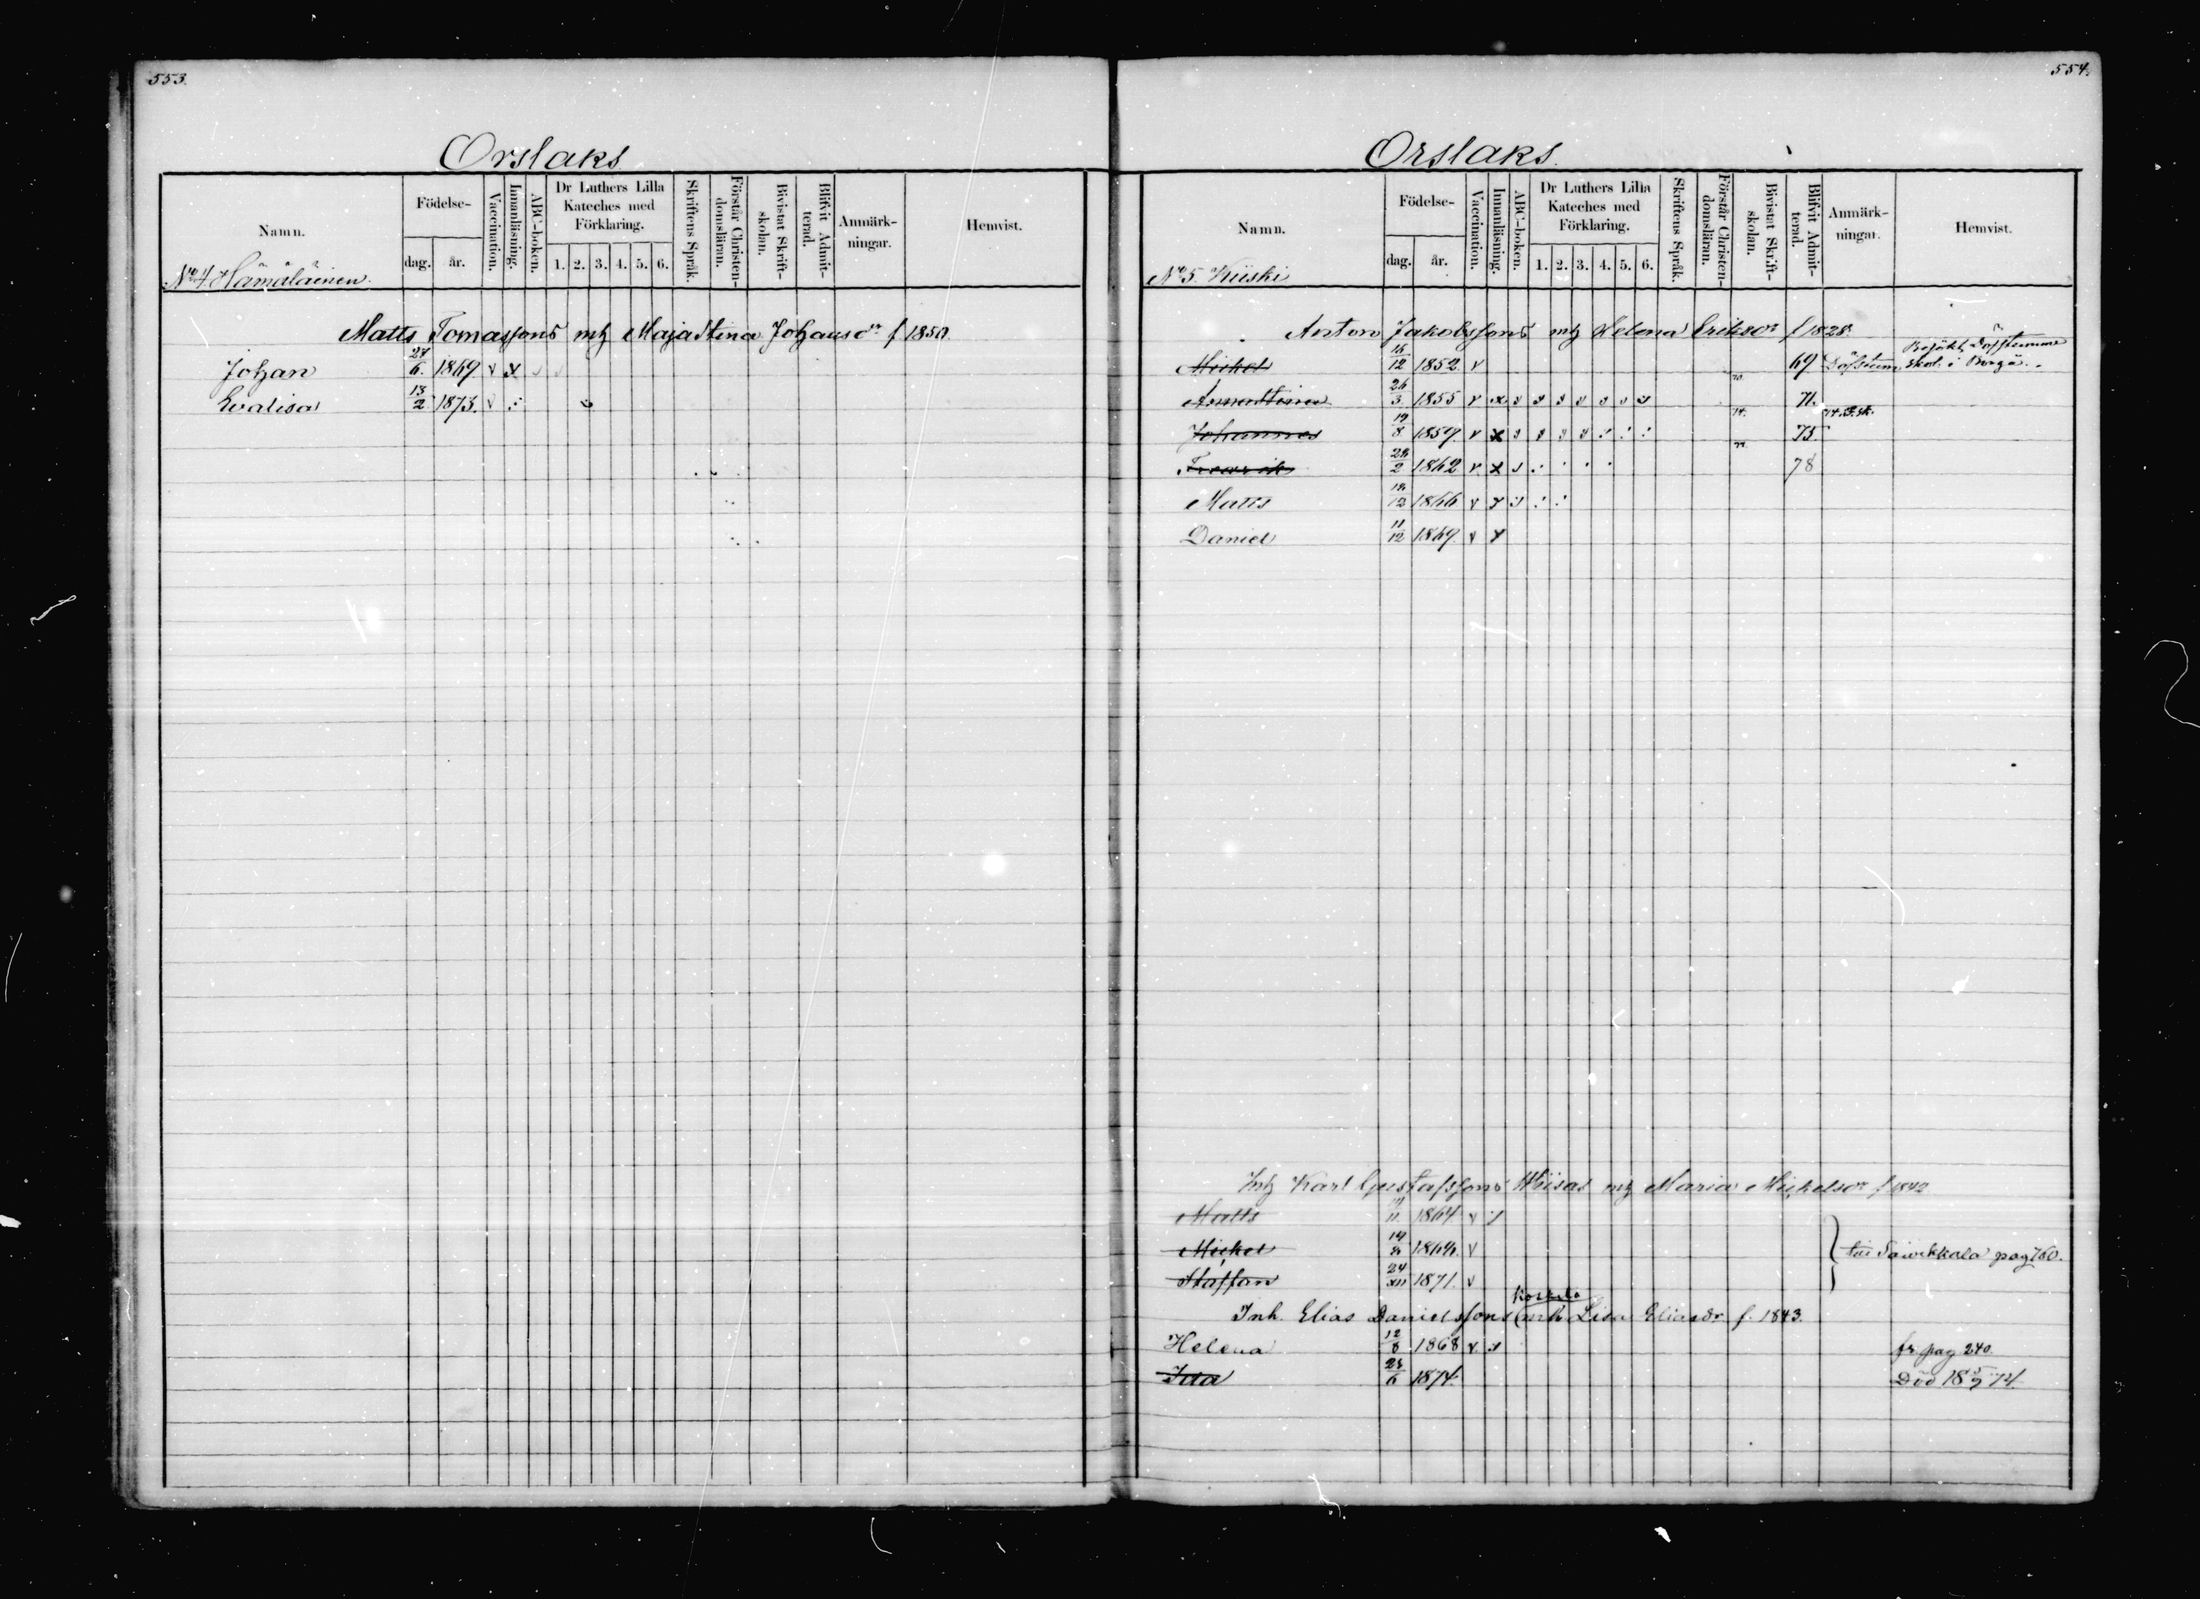 553.
Orslaks
Namn.
Födelse-
dag.
år.
Vaccination.
Innanläsning.
ABC-boken.
Dr Luthers Lilla
Kateches med
Förklaring.
1. 2. 3. 4. 5. 6.
Skriftens Språk.
Förstår Christen-
domsläran.
Bivistat Skrift-
skolan.
Blifvit Admit-
terad.
Anmärk-
ningar.
Hemvist.
No 4 Hämäläinen.
Matts Tomassons mh Maja Stina Johansdr f 1850
Johan 27/6. 1869. v x
Evalisa 13/2 1873. v
554.
Orslaks.
Namn.
Födelse-
dag.
år.
Vaccination.
Innanläsning.
ABC-boken.
Dr Luthers Lilla
Kateches med
Förklaring.
1. 2. 3. 4. 5. 6.
Skriftens Språk.
Förstår Christen-
domsläran.
Bivistat Skrift-
skolan.
Blifvit Admit-
terad.
Anmärk-
ningar.
Hemvist.
No 5. Kiiski
Anton Jakobssons mh Helena Eriksdr f 1828.
Mickel 16/12 1852. v 69 Döfstum Besökt Döfstumme
skol. i Borgå.
Annastina 26/3 1855 v x 71.
Johannes 19/8 1859. v x 75
Fredrik 2 1862 v x 78
Matts 12 1866 v
Daniel 11/12 1869. v
Inh Karl Gustafssons Wiisas mh Maria Mickelsdr f 1842
Matts 11 1864 v
Mickel 1868. v
till Säivikkala pag 760.
Staffan 24/XII 1871. v
Koskela
Inh. Elias Danielssons mh Lisa Eliasdr f. 1843.
Helena 12/8 1868 v fr. pag 240.
Ida 6 1874. Död 18 74.